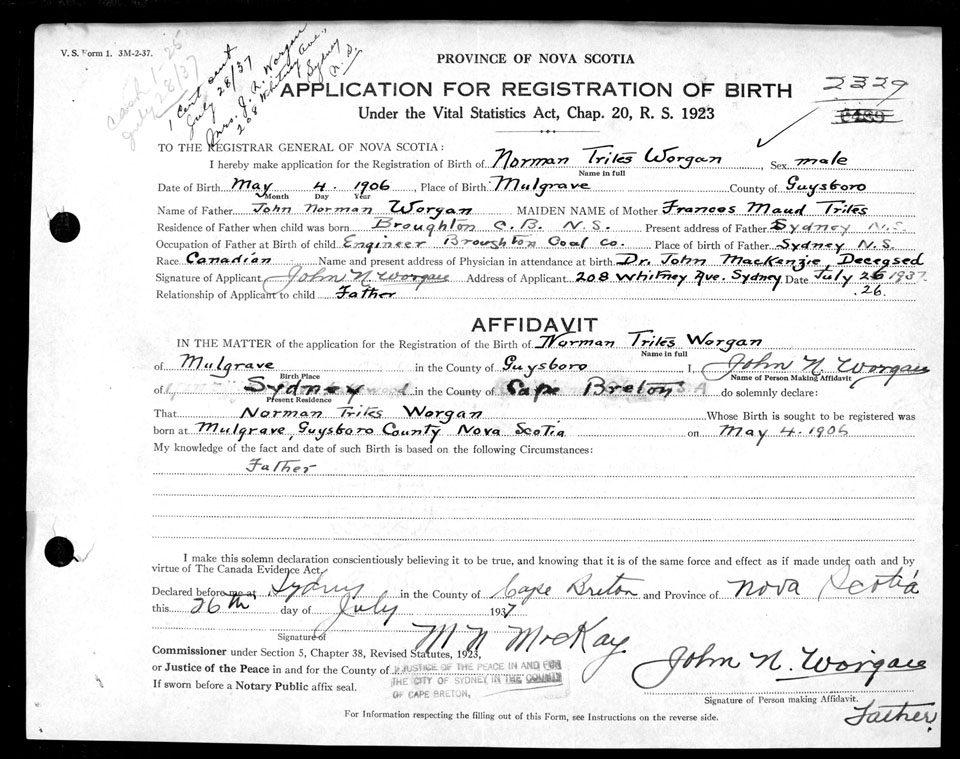 V. S. Form 1. 3M-2-37.
cash 1.25
July 28/37
1 Cert sent
July 28/37
Mrs. J. N. Worgan
208 Whitney Ave.,
Sydney
N. S.
PROVINCE OF NOVA SCOTIA
APPLICATION FOR REGISTRATION OF BIRTH
2329
Under the Vital Statistics Act, Chap. 20, R. S. 1923
TO THE REGISTRAR GENERAL OF NOVA SCOTIA:
I hereby make application for the Registration of Birth of Norman Trites Worgan, Sex male
Name in full
Date of Birth May 4. 1906, Place of Birth Mulgrave County of Guysboro
Month Day Year
Name of Father John Norman Worgan MAIDEN NAME of Mother Frances Maud Trites
Residence of Father when child was born Broughton C.B. N.S. Present address of Father Sydney N.S.
Occupation of Father at Birth of child Engineer Broughton Coal Co. Place of birth of Father Sydney N.S.
Race Canadian Name and present address of Physician in attendance at birth Dr. John MacKenzie, Deceased
Signature of Applicant John N. Worgan Address of Applicant 208 Whitney Ave. Sydney Date July 26 1937
Relationship of Applicant to child Father 26.
AFFIDAVIT
IN THE MATTER of the application for the Registration of the Birth of Norman Trites Worgan
Name in full
of Mulgrave in the County of Guysboro I, John N. Worgan
Birth Place Name of Person Making Affidavit
of Sydney in the County of Cape Breton do solemnly declare:
Present Residence
That Norman Trites Worgan Whose Birth is sought to be registered was
born at Mulgrave, Guysboro County Nova Scotia on May 4. 1906
My knowledge of the fact and date of such Birth is based on the following Circumstances:
Father
I make this solemn declaration conscientiously believing it to be true, and knowing that it is of the same force and effect as if made under oath and by
virtue of The Canada Evidence Act.
Declared before me at Sydney in the County of Cape Breton and Province of Nova Scotia
this 26th day of July 1937
Signature of M N McKay
Commissioner under Section 5, Chapter 38, Revised Statutes, 1923,
or Justice of the Peace in and for the County of JUSTICE OF THE PEACE IN AND FOR
THE CITY OF SYDNEY IN THE COUNTY
OF CAPE BRETON,
If sworn before a Notary Public affix seal.
John N. Worgan
Signature of Person making Affidavit.
Father
For Information respecting the filling out of this Form, see Instructions on the reverse side.